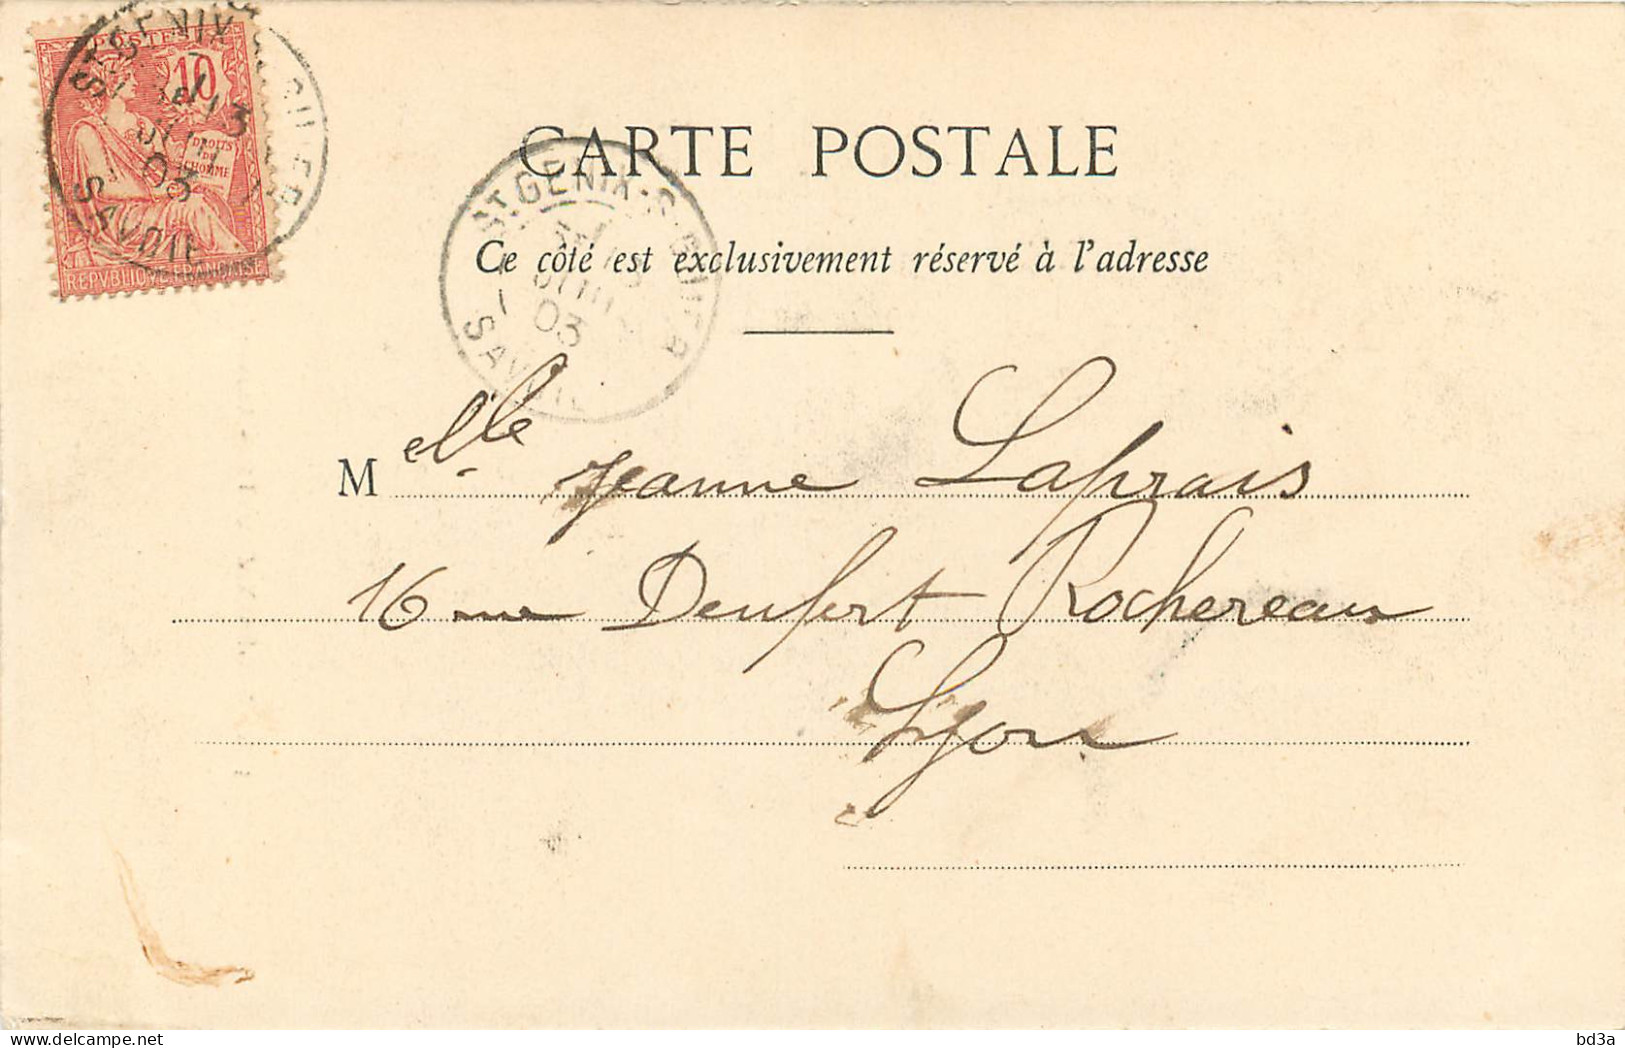 POSTES
10
DROITS
DE
L'HOMME
REPVBLIQVE FRANÇAISE
ST GENIX
03
SAVOIE
CARTE POSTALE
ST. GENIX
03
SAVOIE
Ce côté est exclusivement réservé à l'adresse
Melle Jeanne Laprais
16 rue Denfert Rochereau
Lyon
bd3a